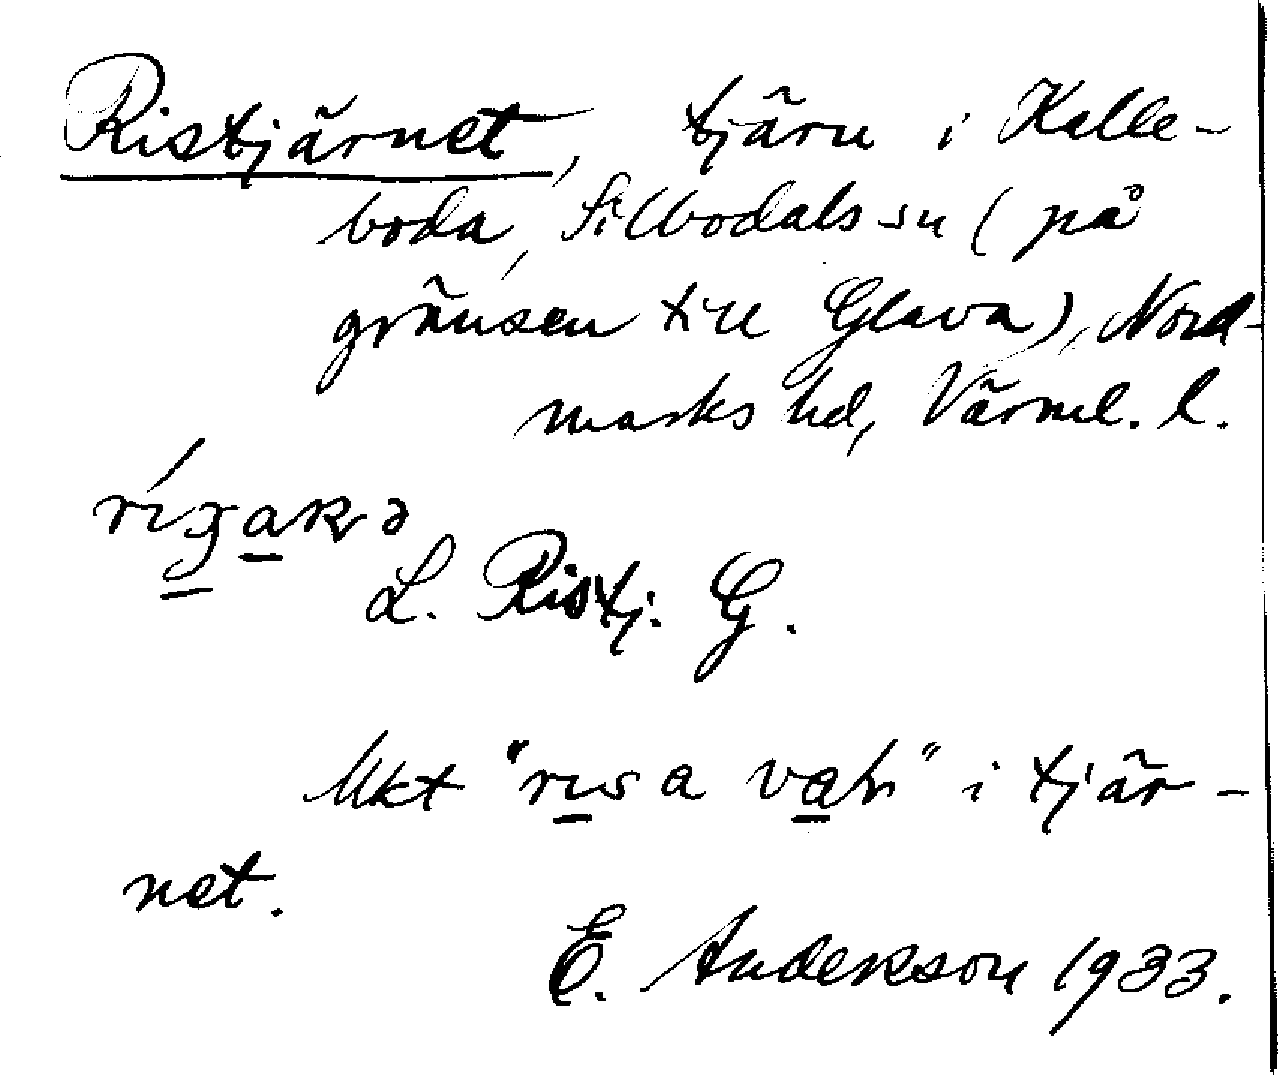 Ristjärnet, tjärn i Kalle-
boda, Silbodals sn (på
gränsen till Glava), Nord-
marks hd, Värml. l.
L. Ristj. G.
Mkt "risa" i tjär-
net.
E. Andersson 1933.